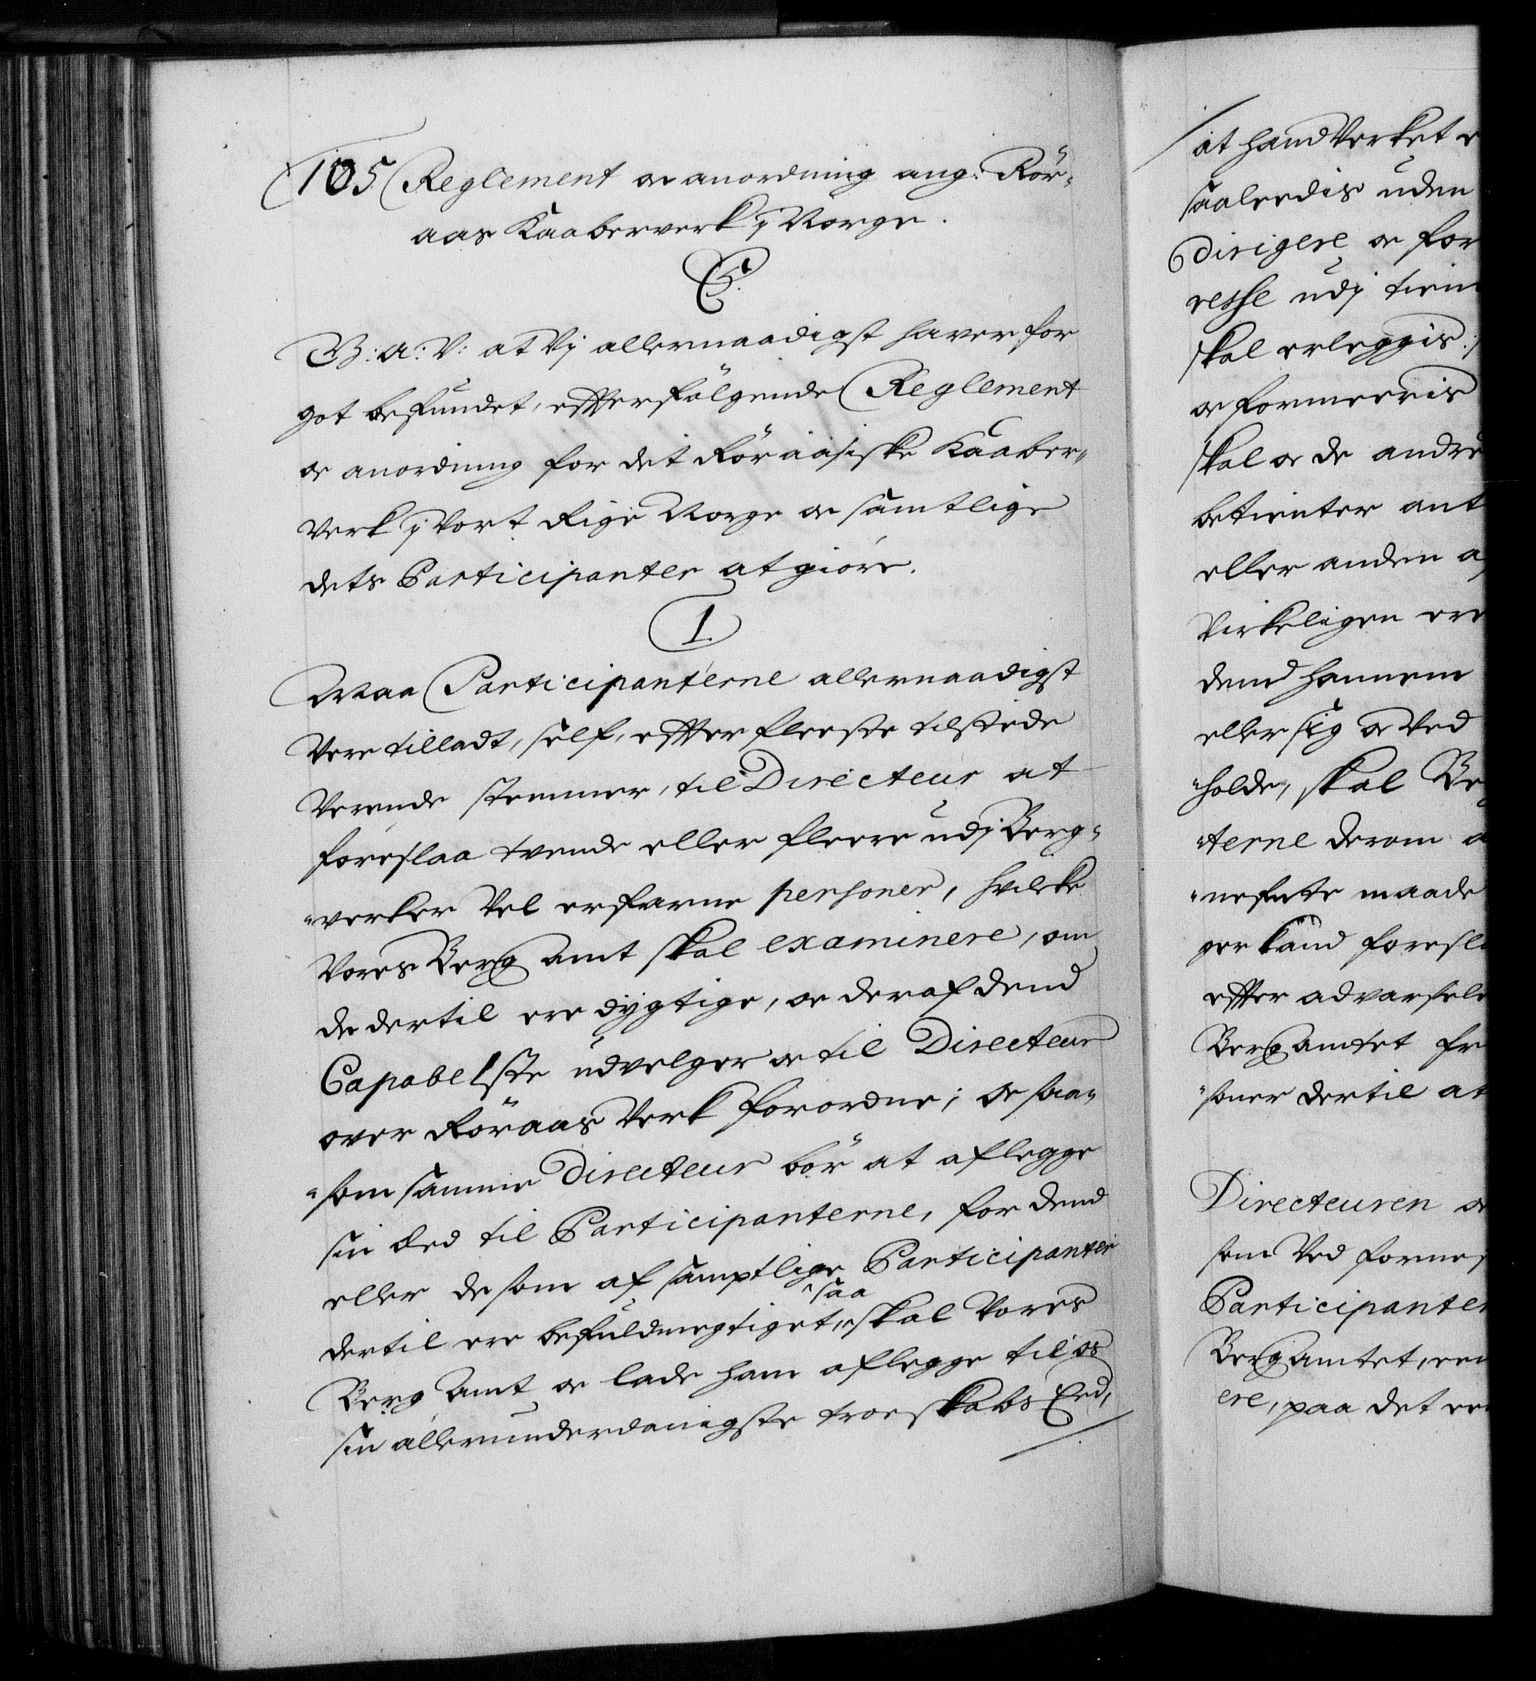 105 Reglement oc anordning ang: Rör-
aas Kaaberverk j Norge.
C5.
G: A: V: at Vj allernaadigst haver for
got befundet, effterfölgende Reglement
oc anordning for det Röraasiske Kaaber-
Verk j Vort Rige Norge oc samtlige
dets Participanter at giöre.
1.
Maa Participanterne allernaadigst
Vere tilladt, self, effter fleeste tilstede
Verende stemmer, til Directeur at
foreslaa tvende eller fleere udj Berg-
verker Vel erfarne personer, hvilcke
Vores Berg Amt skal examinere, om
de dertil ere dygtige, oc deraf dend
Capabelste udvelger oc til Directeur
over Röraas Verk forordne; oc saa-
som samme Directeur bör at aflegge
sin Eed til Participanterne, for dend
eller de som af samptlige Participanter
dertil ere befuldmegtiget, saa skal Vores
Berg Amt oc lade ham aflegge til os
sin allerunderdanigste troeskabs Eed,
at hand Verket
saaleedis uden
dirigere oc for
resse udj
skal erleggis:
oc formeeris
skal oc de andre
betienter
eller anden
Virkeligen
dend hannem
eller sig oc Ved
holde, skal
terne derom
nefnte maade
ger kand
effter
Bergamtet
soner dertil at
Directeuren
som Ved
Participanter
Bergamtet,
ere, paa det